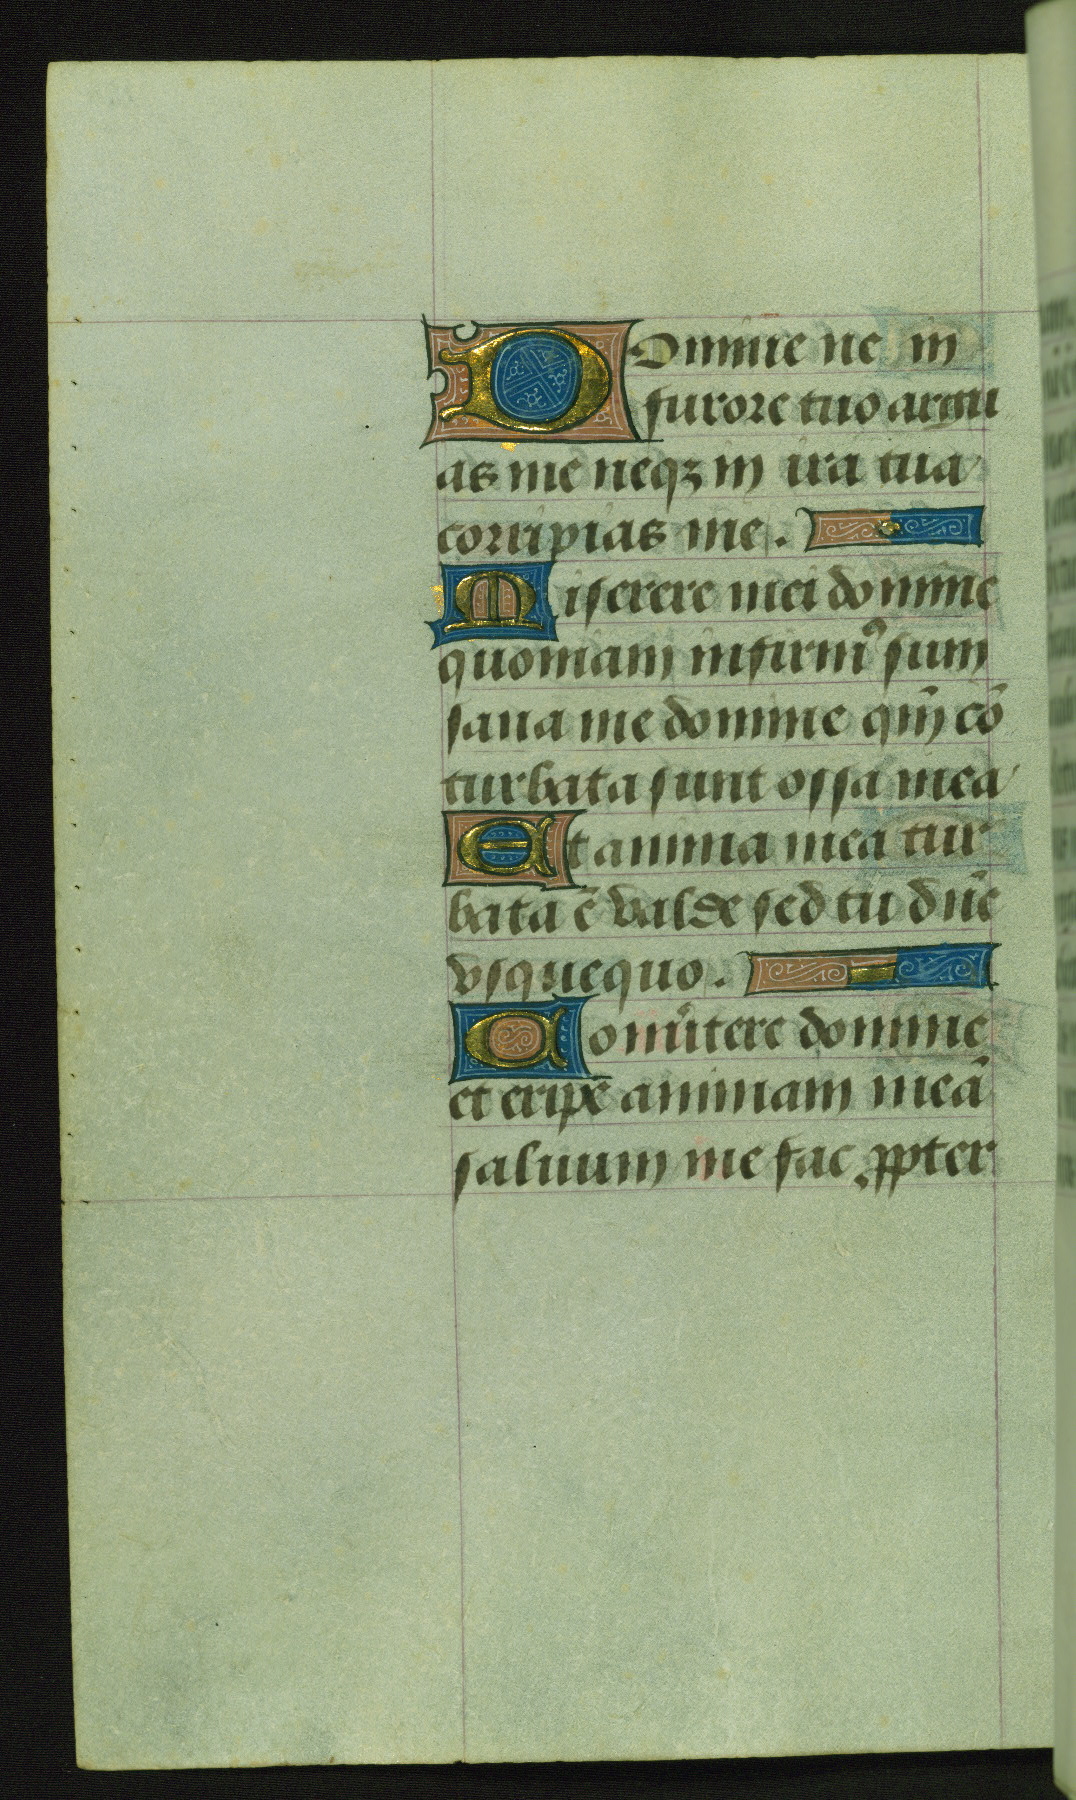 DOmine ne in
furore tuo argu
as me neqꝫ in ira tua
corripias me.
Miserere mei domine
quoniam infirmꝰ sum
sana me domine qm̄ cō
turbata sunt ossa mea
Et anima mea tur
bata ē valde sed tu dn̄e
vsquequo.
Conũtere domine
et eripe animam meā
saluum me fac ꝓpter